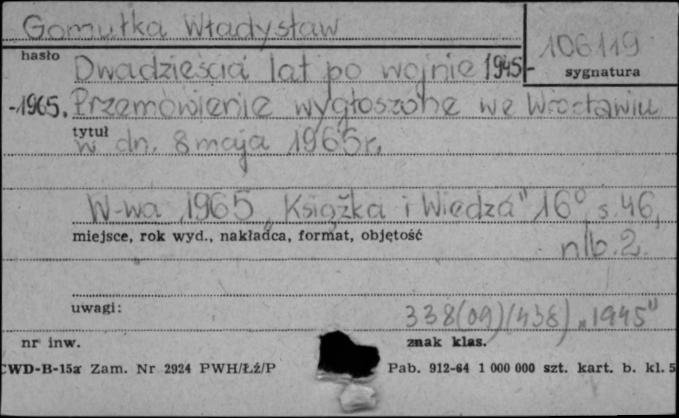 Gomułka Władysław
hasło
106119
sygnatura
Dwadzieścia lat po wojnie 1945-
-1965. Przemówienie wygłoszone we Wrocławiu
tytuł
w dn. 8 maja 1965 r.
W-wa 1965 "Książka i Wiedza" 16° s. 46,
miejsce, rok wyd., nakładca, format, objętość
nlb. 2.
uwagi:
338(09)(438) „1945"
nr inw.
znak klas.
CWD-B-15a Zam. Nr 2924 PWH/Łź/P
Pab. 912-64 1 000 000 szt. kart. b. kl. 5